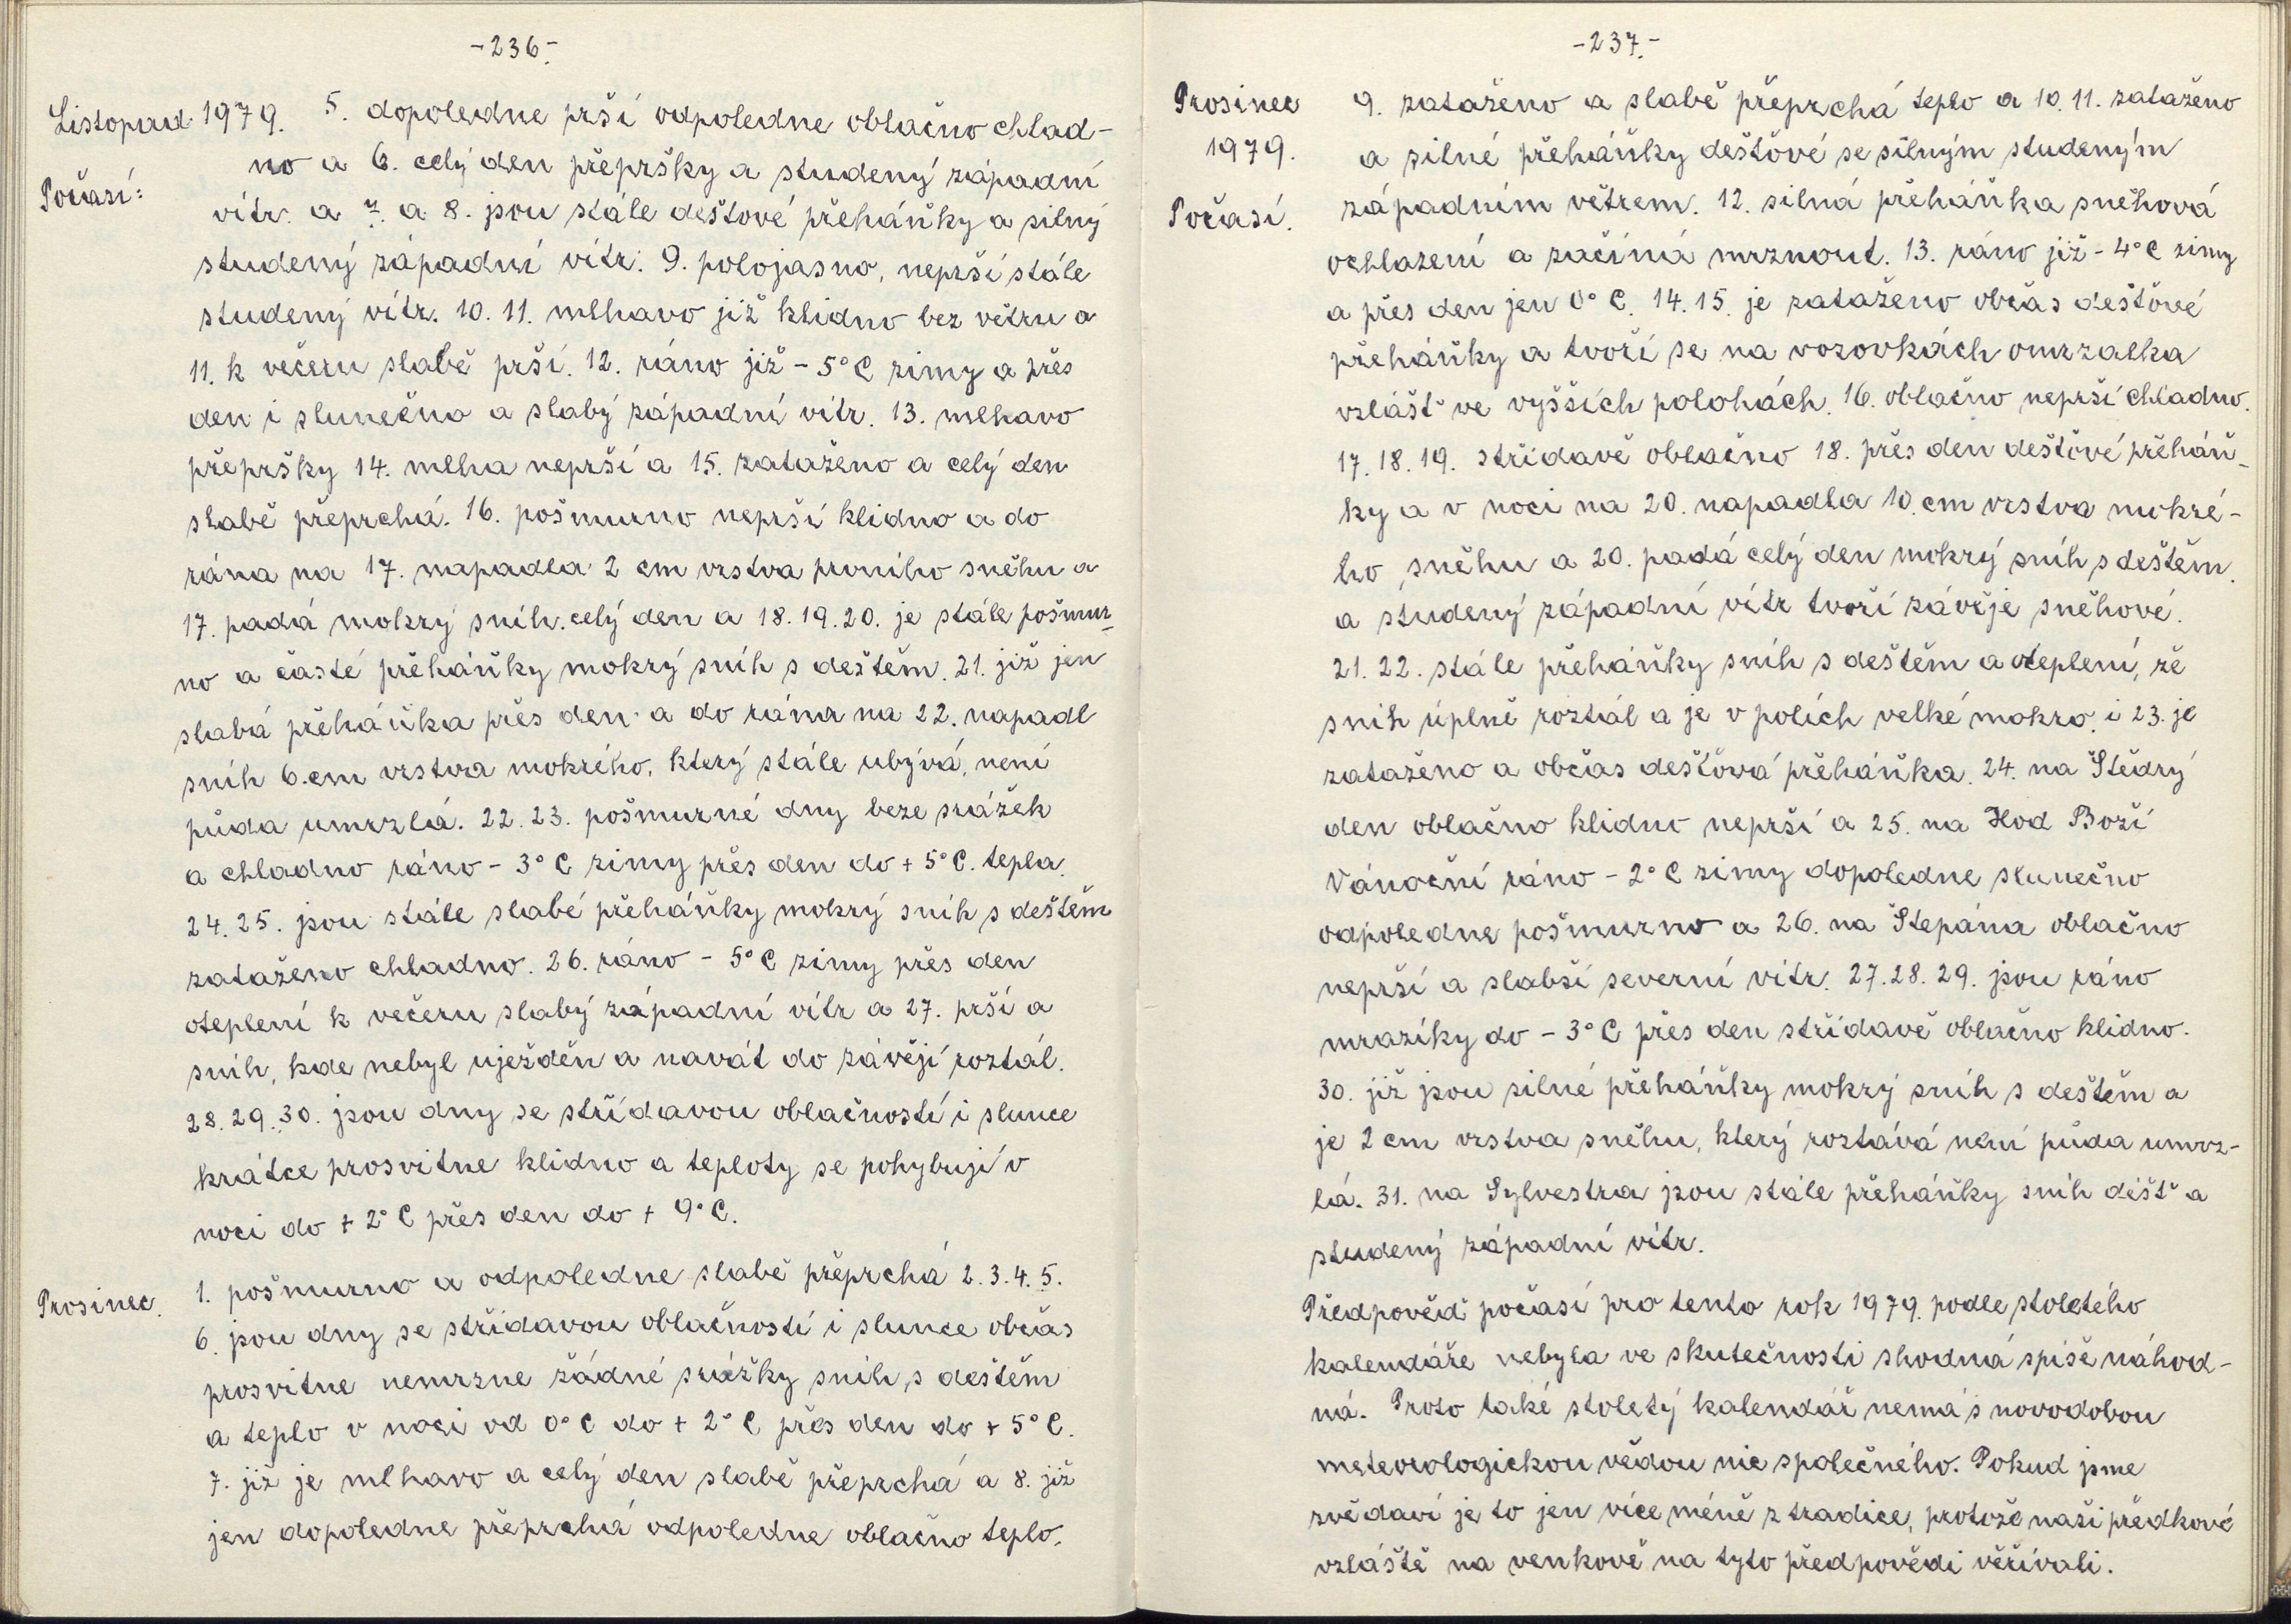 -236.-
Listopad 1979. 5. dopoledne prší odpoledne oblačno chlad-
no a 6. celý den přepršky a studený západní
Počasí:
vítr. a 7. a 8. jsou stále dešťové přeháňky a silný
studený západní vítr. 9. polojasno, neprší stále
studený vítr. 10. 11. mlhavo již klidno bez větru a
11. k večeru slabě prší. 12. ráno již - 5° C zimy a přes
den i slunečno a slabý západní vítr. 13. mlhavo
přepršky 14. mlha neprší a 15. zataženo a celý den
slabě přeprchá. 16. pošmurno neprší klidno a do
rána na 17. napadla 2 cm vrstva prvního sněhu a
17. padá mokrý sníh. celý den a 18. 19. 20. je stále pošmur-
no a časté přeháňky mokrý sníh s deštěm. 21. již jen
slabá přeháňka přes den a do rána na 22. napadl
sníh 6.cm vrstva mokrého, který stále ubývá, není
půda umrzlá. 22. 23. pošmurné dny beze srážek
a chladno ráno - 3° C zimy přes den do + 5° C. tepla.
24. 25. jsou stále slabé přeháňky mokrý sníh s deštěm
zataženo chladno. 26. ráno - 5° C zimy přes den
oteplení k večeru slabý západní vítr a 27. prší a
sníh, kde nebyl uježděn a navát do závějí roztál.
28. 29. 30. jsou dny se střídavou oblačností i slunce
krátce prosvitne klidno a teploty se pohybují v
noci do + 2° C přes den do + 9° C.
Prosinec. 1. pošmurno a odpoledne slabě přeprchá 2. 3. 4. 5.
6. jsou dny se střídavou oblačností i slunce občas
prosvitne nemrzne žádné srážky sníh s deštěm
a teplo v noci od 0° C do + 2° C přes den do + 5° C.
7. již je mlhavo a celý den slabě přeprchá a 8. již
jen dopoledne přeprchá odpoledne oblačno teplo.
-237.-
Prosinec 9. zataženo a slabě přeprchá teplo a 10. 11. zataženo
1979. a silné přeháňky dešťové se silným studeným
Počasí. západním větrem. 12. silná přeháňka sněhová
ochlazení a začíná mrznout. 13. ráno již - 4° C zimy
a přes den jen 0° C. 14. 15. je zataženo občas dešťové
přeháňky a tvoří se na vozovkách omrzalka
vzlášť ve vyšších polohách. 16. oblačno neprší chladno.
17. 18. 19. střídavě oblačno 18. přes den dešťové přeháň-
ky a v noci na 20. napadla 10.cm vrstva mokré-
ho sněhu a 20. padá celý den mokrý sníh s deštěm.
a studený západní vítr tvoří závěje sněhové.
21. 22. stále přeháňky sníh s deštěm a oteplení, že
sníh úplně roztál a je v polích velké mokro. i 23. je
zataženo a občas dešťová přeháňka. 24. na Štědrý
den oblačno klidno neprší a 25. na Hod Boží
Vánoční ráno - 2° C zimy dopoledne slunečno
odpoledne pošmurno a 26. na Štepána oblačno
neprší a slabší severní vítr. 27. 28. 29. jsou ráno
mrazíky do - 3° C přes den střídavě oblačno klidno.
30. již jsou silné přeháňky mokrý sníh s deštěm a
je 2 cm vrstva sněhu, který roztává není půda umrz-
lá. 31. na Sylvestra jsou stále přeháňky sníh déšť a
studený západní vítr.
Předpověď počasí pro tento rok 1979. podle stoletého
kalendáře nebyla ve skutečnosti shodná spíše náhod-
ná. Proto také stoletý kalendář nemá s novodobou
meteorologickou vědou nic společného. Pokud jsme
zvědaví je to jen více méně z tradice, protože naši předkové
vzláště na venkově na tyto předpovědi věřívali.